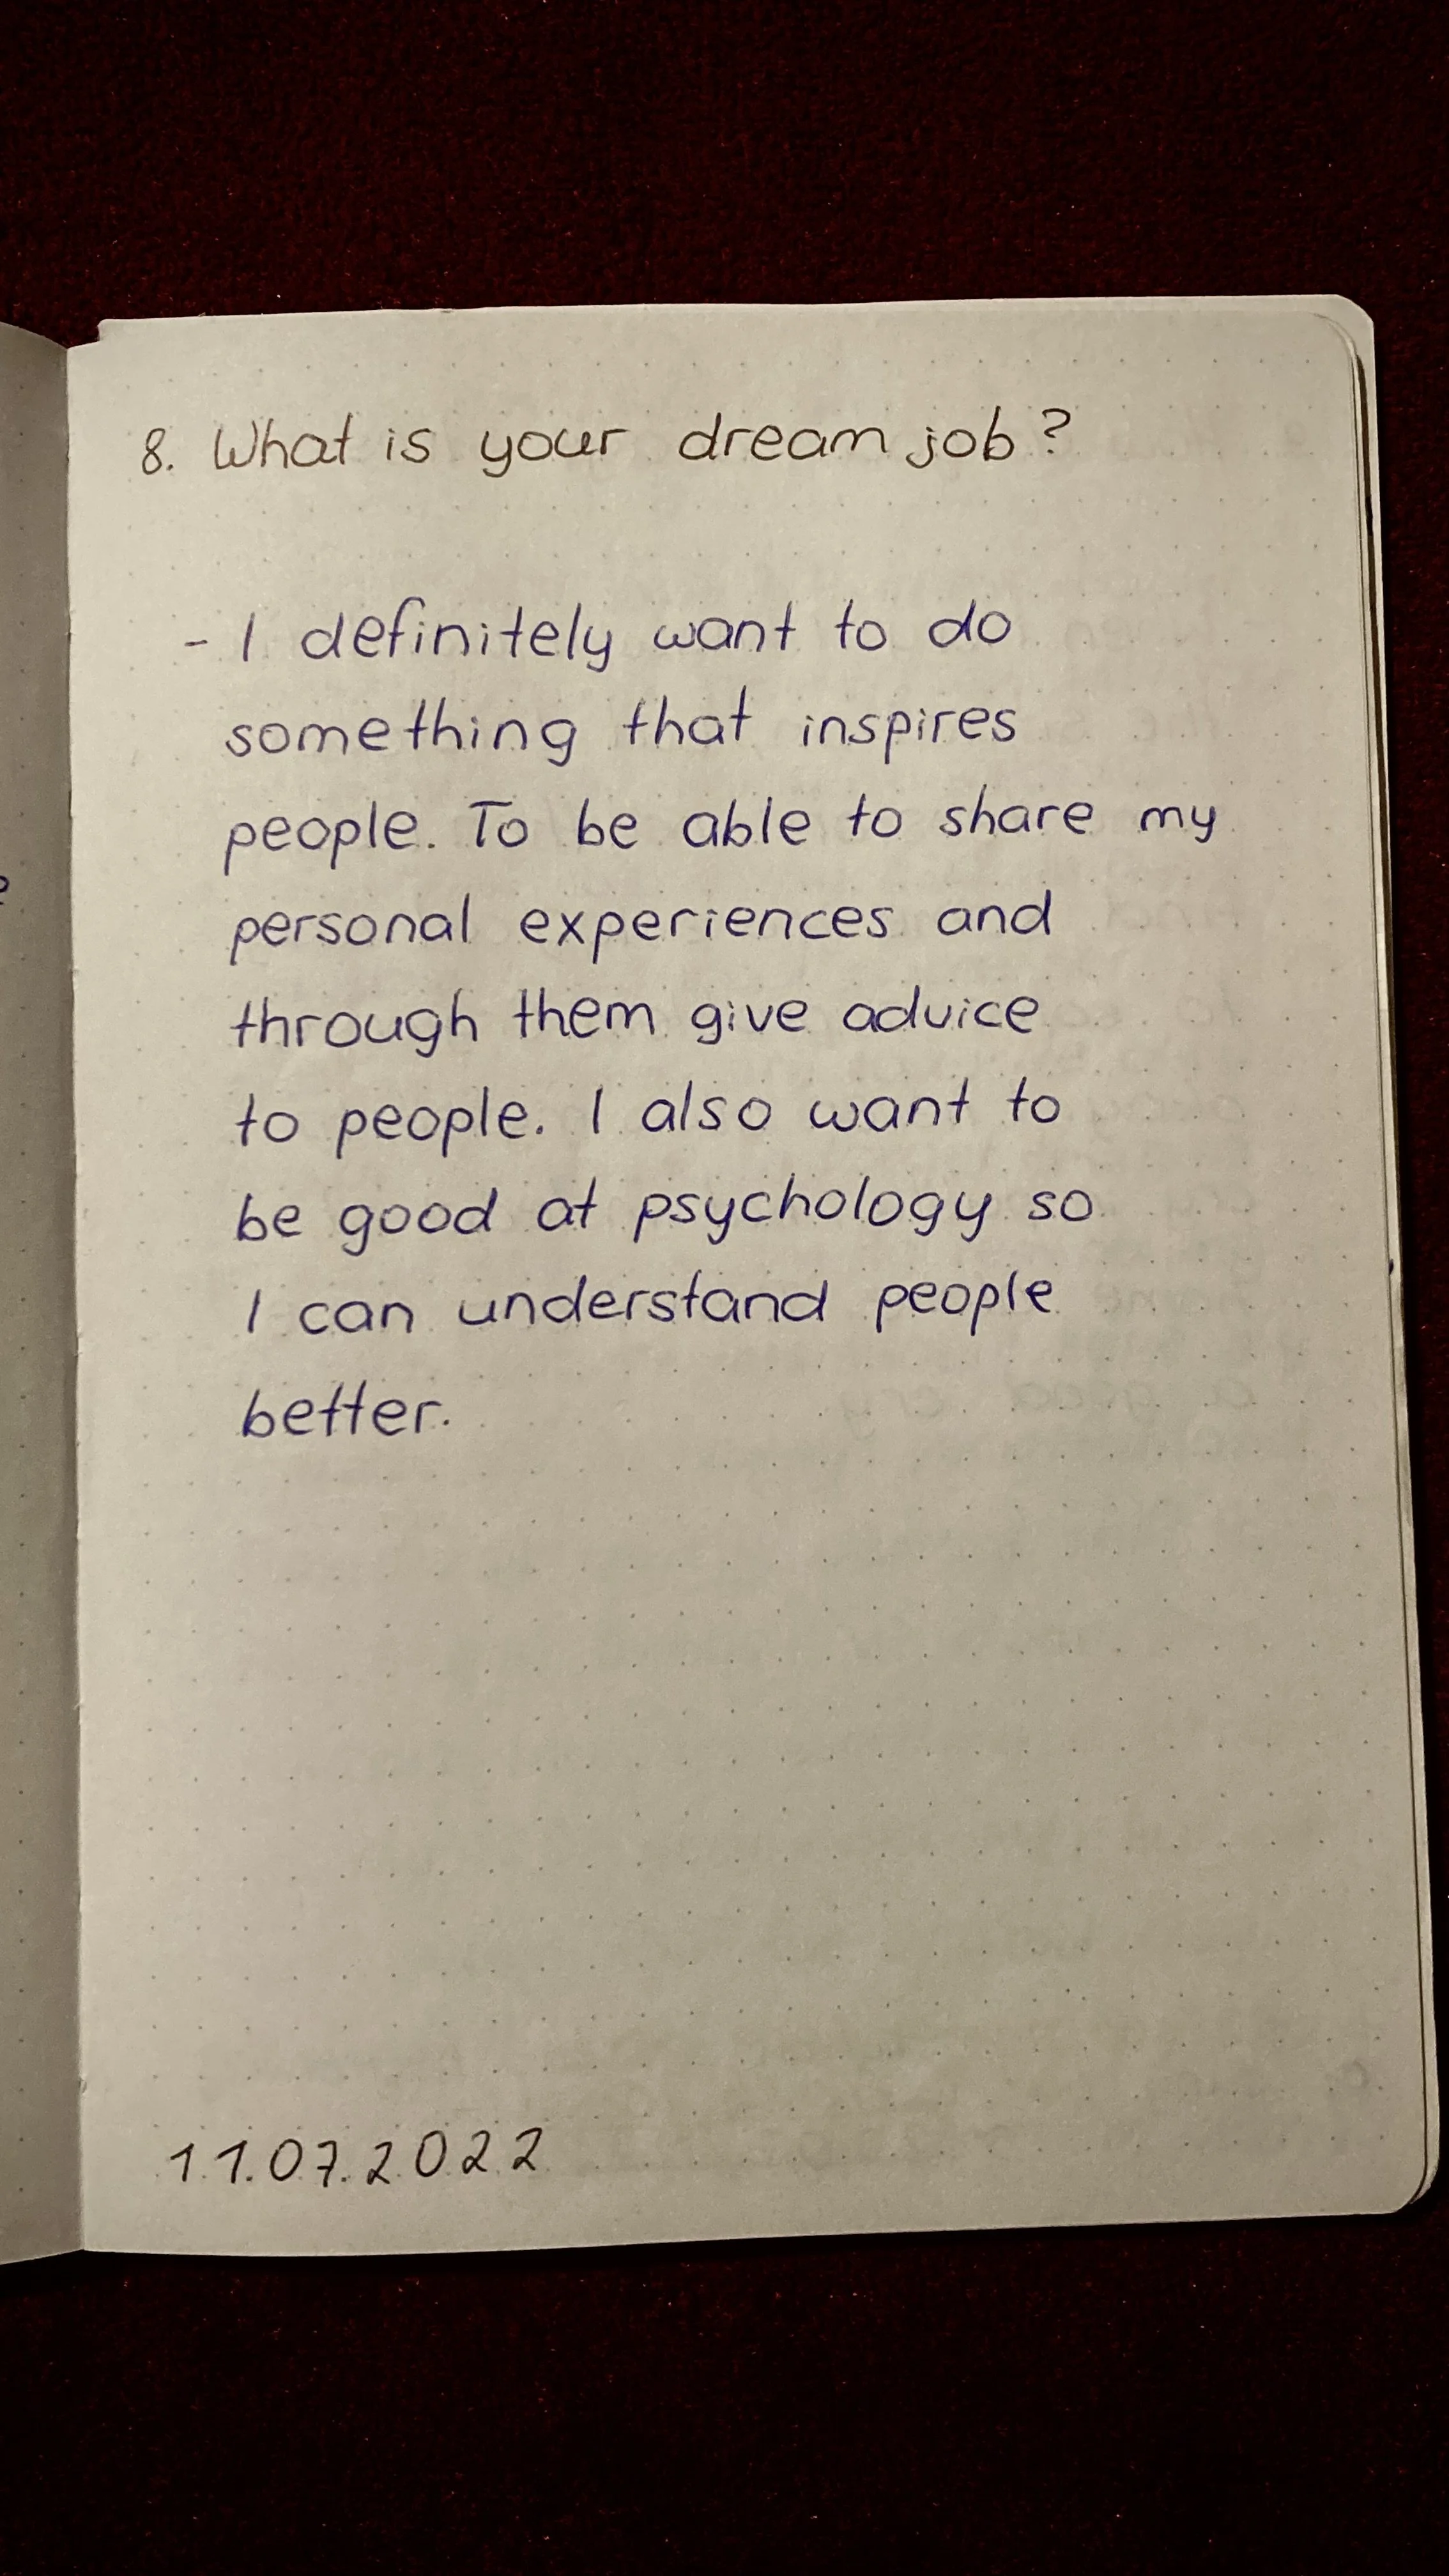 8. What is your dream job?
- I definitely want to do
something that inspires
people. To be able to share my
personal experiences and
through them give advice
to people. I also want to
be good at psychology so
I can understand people
better.
11.07.2022